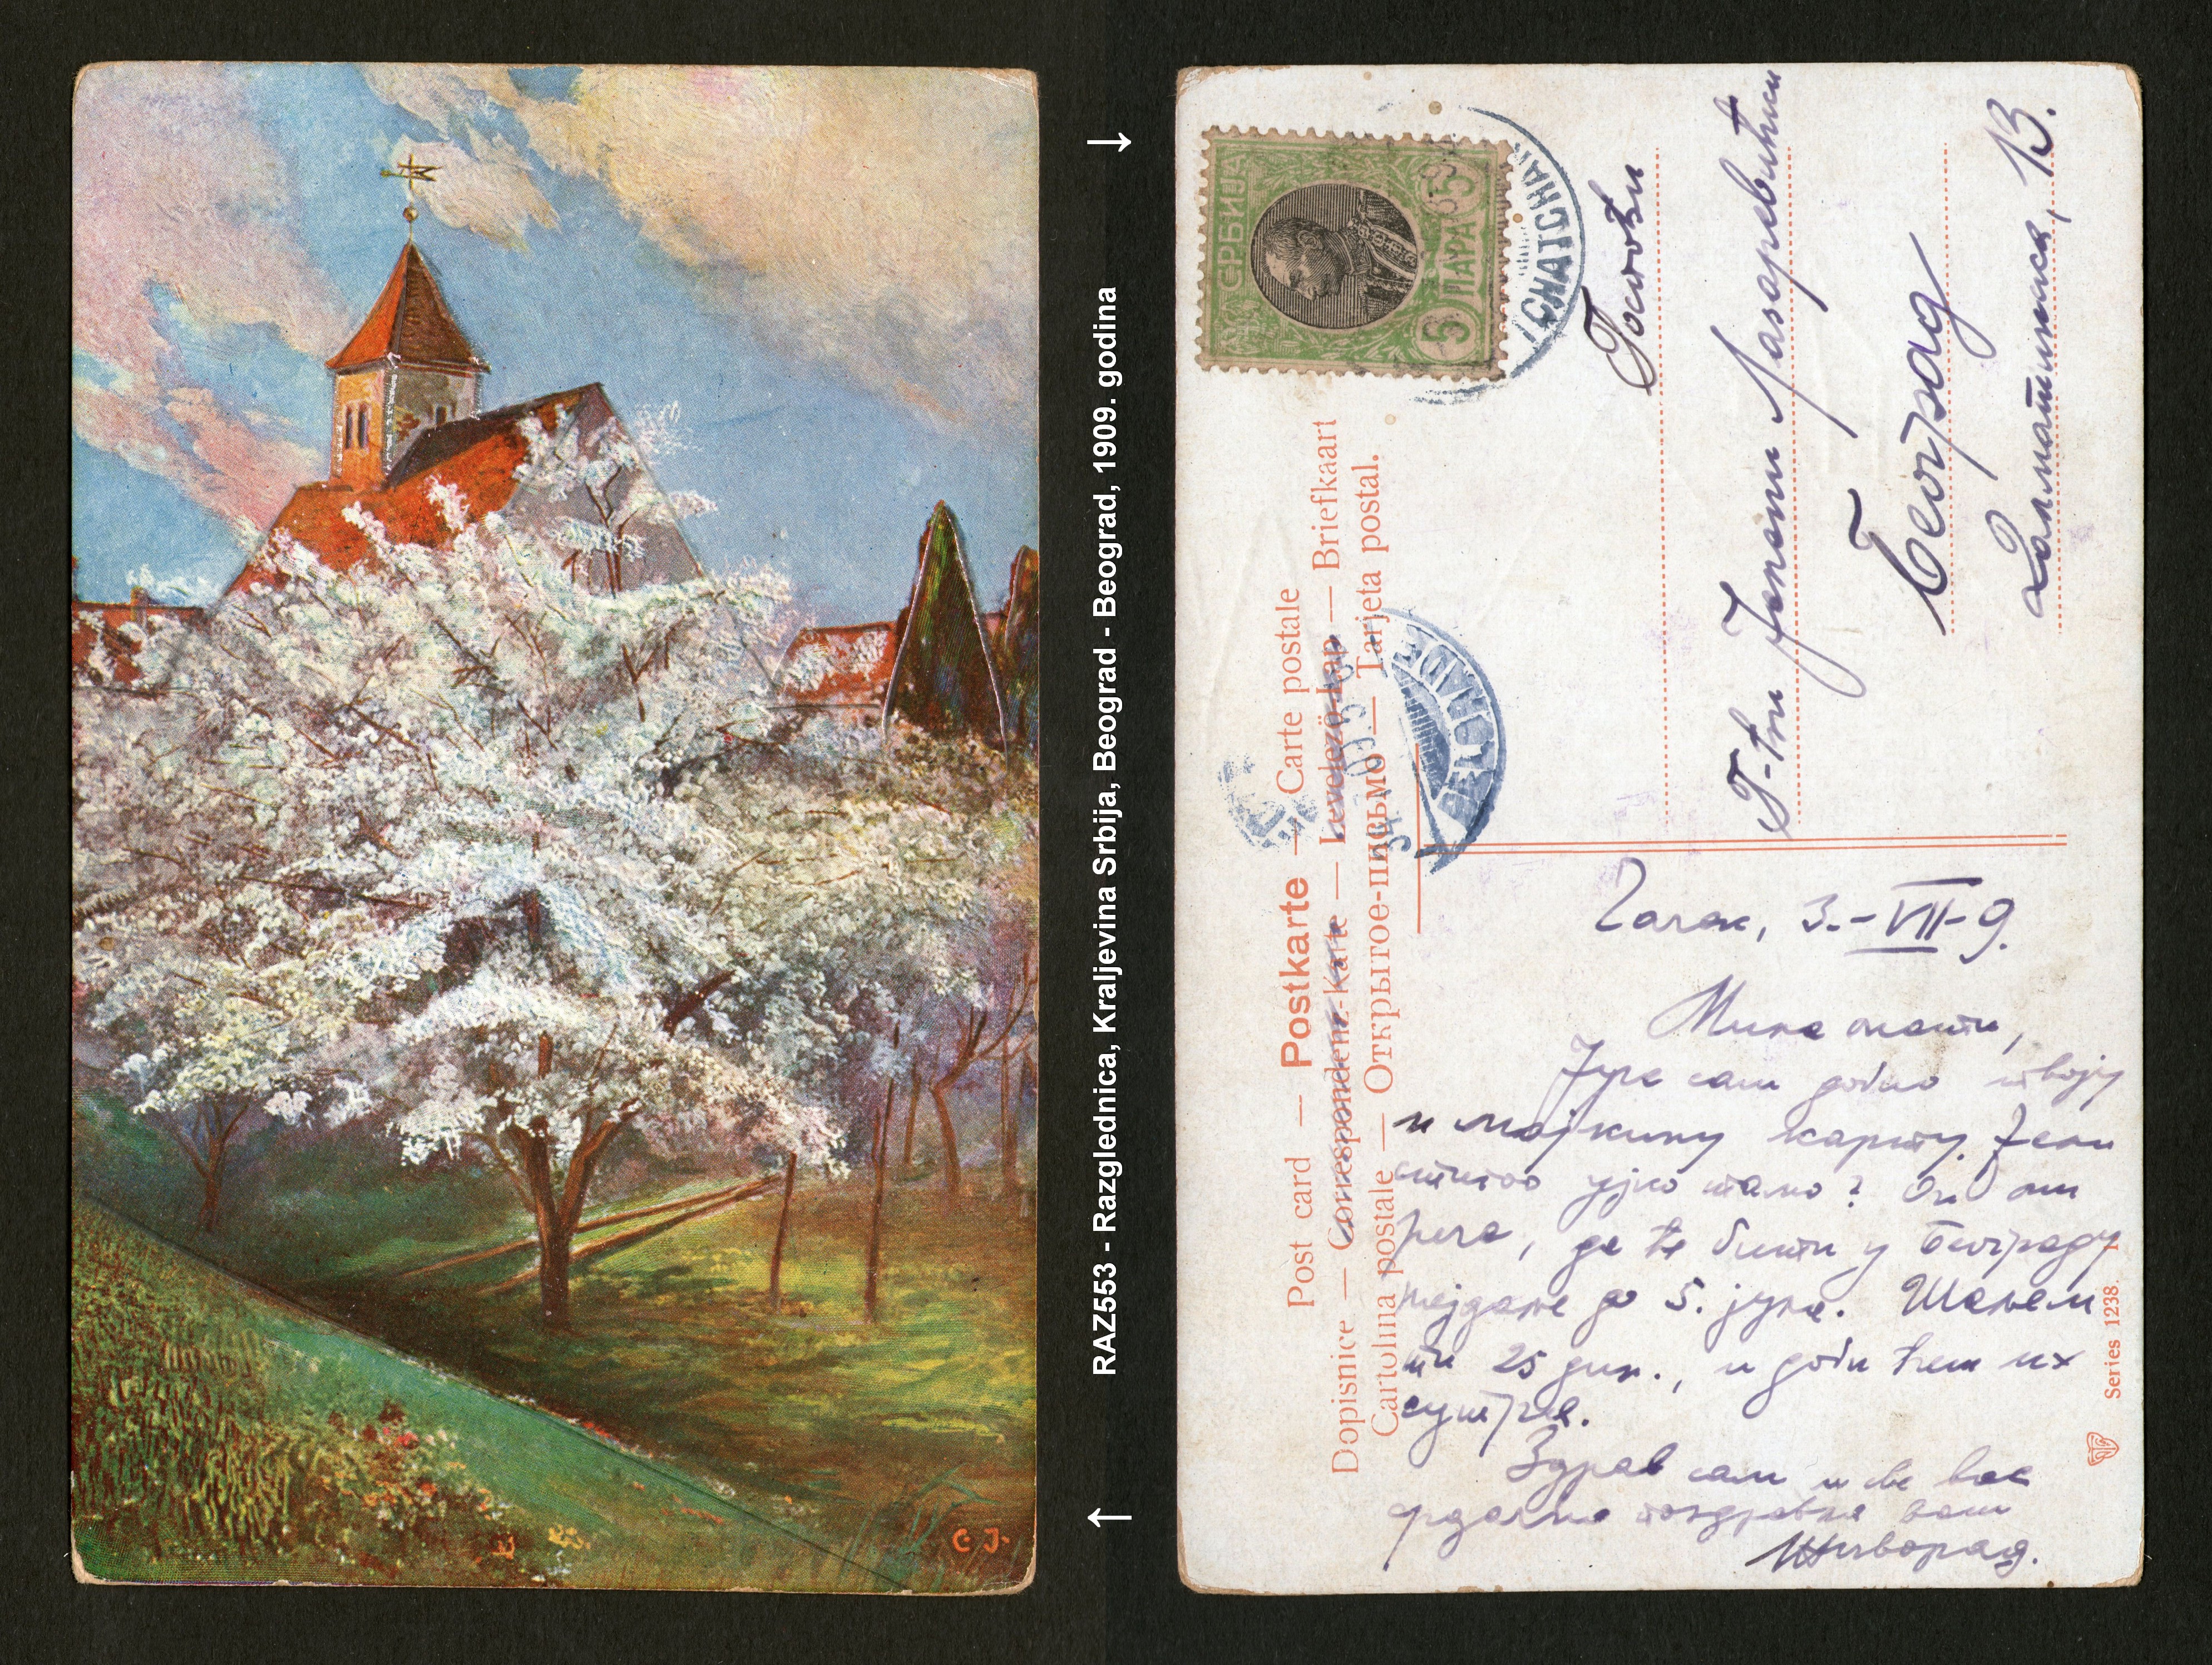 C. J.
RAZ553 - Razglednica, Kraljevina Srbija, Beograd - Beograd, 1909. godina
СРБИЈА
5 ПАРА 5
TCHATCHAK
BELGRADE
Post card — Postkarte — Carte postale
Dopisnice — Correspondenz-Karte — Levelező-Lap — Briefkaart
Cartolina postale — Открытое-письмо — Tarjeta postal.
Госпођи
Г-ђи Јелени Лазаревићки
Београд
Далматинска, 13.
Чачак, 3.-VII-9.
Мила мати,
Јуче сам добио твоју
и мајкину карту. Јели
стигао ујко тамо? Он ми
рече, да ће бити у Београду
најдаље до 5. јула. Шаљем
ти 25 дин., и доби ћеш их
сутра.
Здрав сам и све вас
срдачно поздравља ваш
Живорад.
Series 1238.